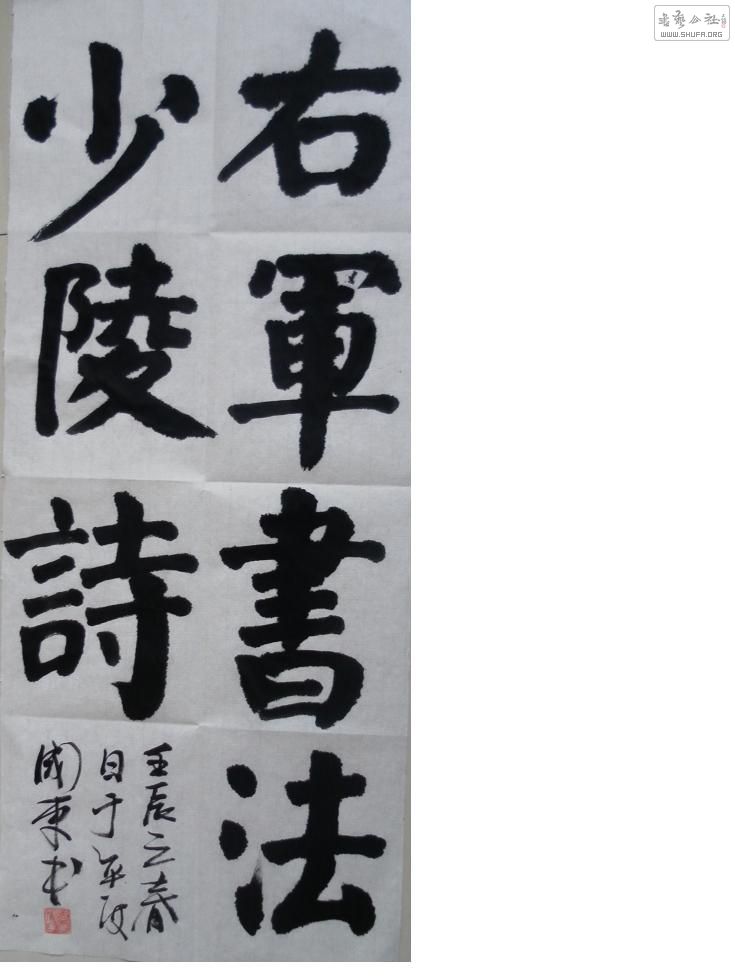 右軍書法
少陵詩
壬辰之春
日于平陵
國東书
书艺公社
WWW.SHUFA.ORG